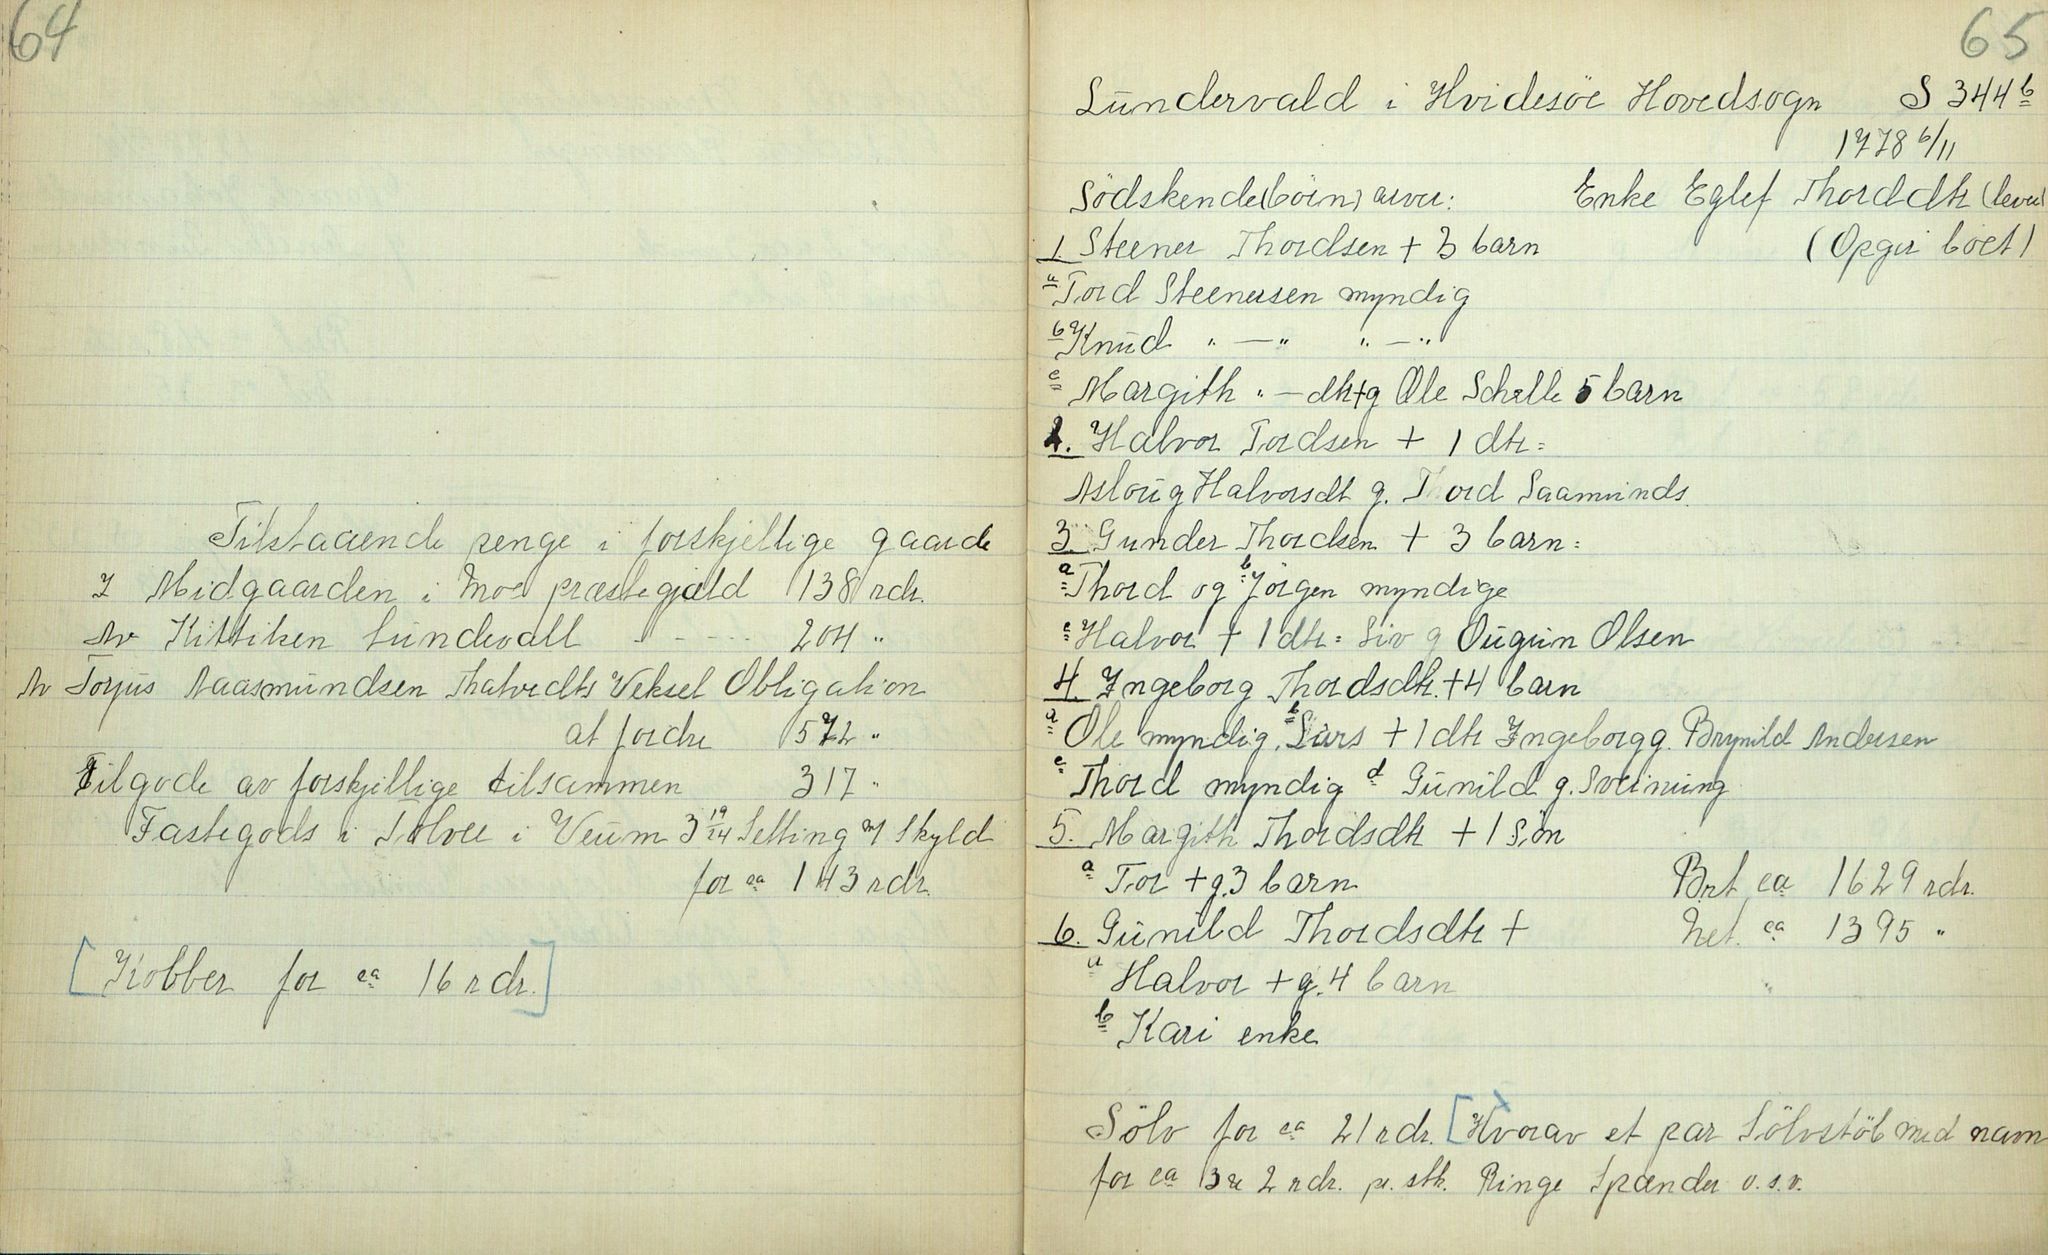 64
Tilstaaende penge i forskjellige gaarde
I Midgaarden i Moe præstegjæld 138 rdr.
Av Kittiken Sundevall - - - - 204 "
Av Torjus Aasmundsen Veksel Obligation
at fordre 572 "
Tilgode av forskjellige tilsammen 317 "
Fastegods i i Veum 3 19/24 Setting m/ Skyld
for ca 143 rdr.
[Kobber for ca 16 rdr.]
65
Sundervald i Hvidesöe Hovedsogn S 344 b
1778 6/11
Södskende(börn) arver: Enke Eglef Thorddtr (lever)
1. Steener Thordsen + 3 barn (Opgir boet)
a Tord Steenersen myndig
b Knud " — " " — "
c Margith " — dtr + g Ole Schelle 5 barn
2. Halvor Tordsen + 1 dtr =
Asloug Halvorsdt g. Thord Saamunds.
3. Gunder Thordsen + 3 barn =
a Thord og b Jörgen myndige
c Halvor + 1 dtr = Siv g Ougun Olsen
4. Ingeborg Thordsdtr. + 4 barn
a Ole myndig, b Lars + 1 dtr Ingeborg g. Brynild Andersen
c Thord myndig d Gunild g. Sveinung
5. Margith Thordsdtr + 1 Sön
a Tor + g. 3 barn Brt. ca 1629 rdr.
6. Gunild Thordsdtr + Net. ca 1395 "
a Halvor + g. 4 barn
b Kari enke
Sölv for ca 21 rdr. [Hvorav et par Sölvstöb med navn
for ca 3 a 2 rdr. pr. stk. Ringe Spænder o.s.v.